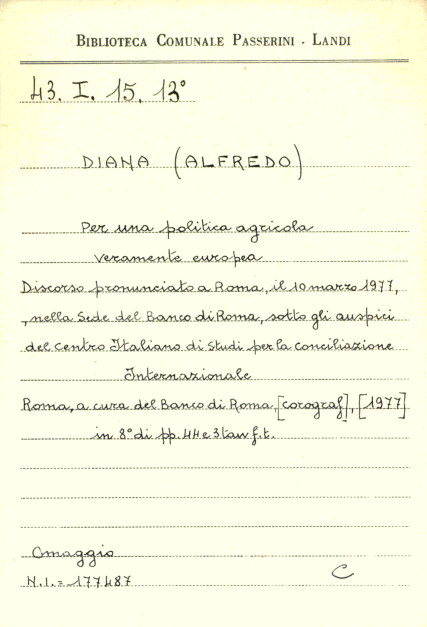 BIBLIOTECA COMUNALE PASSERINI - LANDI
43. I. 15. 13°
DIANA (ALFREDO)
Per una politica agricola
veramente europea
Discorso pronunciato a Roma, il 10 marzo 1977,
nella Sede del Banco di Roma, sotto gli auspici
del Centro Italiano di Studi per la conciliazione
Internazionale
Roma, a cura del Banco di Roma, [corograf], [1977]
in 8° di pp. 44 e 3 tav f.t.
Omaggio
N.I. = 177487
C